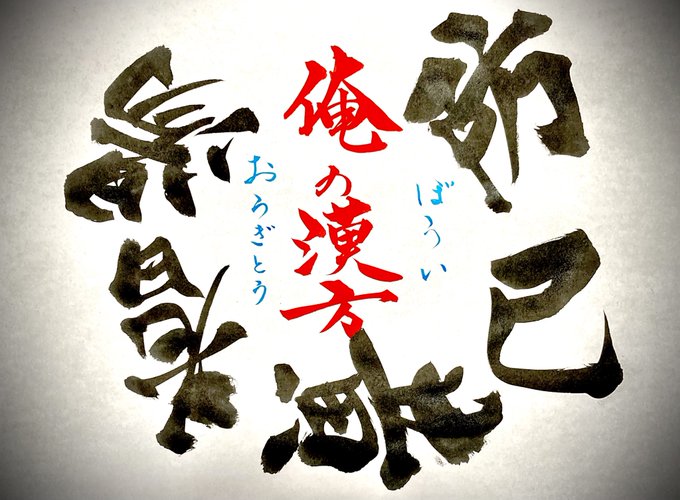 防已黄耆湯
俺の漢方
ぼうい
おうぎとう